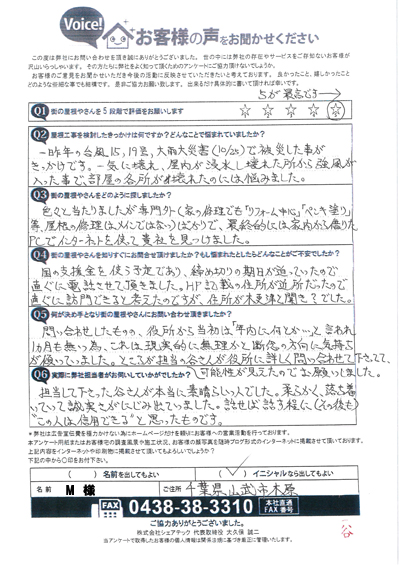 Voice!
お客様の声をお聞かせください
この度は弊社にお問い合わせを頂き誠にありがとうございました。世の中には弊社の存在やサービスをご存知ないお客様が
沢山いらっしゃいます。その方たちに弊社をよく知って頂くためのアンケートにご協力頂けないでしょうか。
お客様のご意見をお聞かせいただき今後の活動に反映させていただきたいと考えております。良かったこと、嬉しかったこと
どのような些細な事でも結構です。是非ご協力お願い致します。出来るだけ具体的に書いて頂ければ幸いです。
5が最高です→
Q1 街の屋根やさんを5段階で評価をお願いします
☆ ☆ ☆ ☆ ☆
Q2 屋根工事を検討したきっかけは何ですか?どんなことで悩まれていましたか?
一昨年の台風15,19号、大雨大災害(10/25)で被災した事が
きっかけです。一気に壊れ、屋内が浸水し壊れた所から強風が
入った事で、部屋の各所が壊れたのには悩みました。
Q3 街の屋根やさんをどのように探しましたか?
色々と当たりましたが専門外(家の修理でも「リフォーム中心」「ペンキ塗り」
等、屋根の修理はメインではない)ばかりで、最終的には家内から借りた
PCでインターネットを使って貴社を見つけました。
Q4 街の屋根やさんを知りすぐにお問合せ頂けましたか?もし悩まれたとしたらどんなことが不安でしたか?
国の支援金を使う予定であり、締め切りの期日が迫っていたので
直ぐに電話させて頂きました。HP記載の住所が近所だったので
直ぐに訪問できると考えたのですが、住所が木更津と聞き?でした。
Q5 何が決め手となり街の屋根やさんにお問い合わせ頂きましたか?
問い合せしたものの、役所から当初は「年内に何とか…」と言われ
1ヵ月も無い為、これは現実的に無理かと断念の方向に気持ち
が傾いていました。ところが担当の谷さんが役所に詳しく問い合わせて下さって、
可能性が見えたのでお願いしました。
Q6 実際に弊社担当者がお伺いしていかがでしたか?
担当して下さった谷さんが本当に素晴らしい人でした。柔らかく、落ち着
いていて誠実さがにじみ出ていました。話せば話す程に(その後も)
"この人は信用できる"と思ったものです。
*弊社は広告宣伝費を極力かけない為にホームページだけを頼りにお客様への営業活動を行っております。
本アンケート用紙またはお客様宅の調査風景や施工状況、お客様の顔写真を随時ブログ形式のインターネットに掲載させて頂いております。
上記内容をインターネットや印刷物に掲載させて頂いてもよろしいでしょうか?
下記の中から〇印をお付け下さい。
( )名前を出してもよい ( ✓ )イニシャルなら出してもよい
名前 M 様 ご住所 千葉県山武市木原
FAX 0438-38-3310 本社直通FAX番号
谷
ご協力ありがとうございました。
株式会社シェアテック 代表取締役 大久保 誠二
当アンケートで取得したお客様の個人情報は関係法規に基づき厳正に管理いたします。